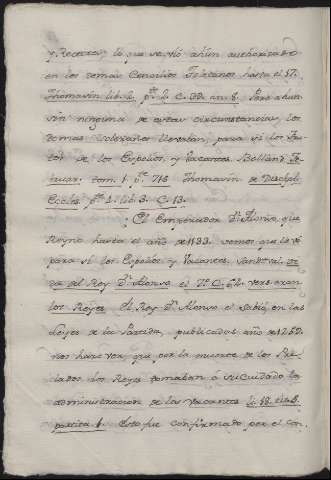 y Rectores, lo que se vió ahun authorizado
en los demás Concilios Toletanos hasta el 17.
Thomasin lib. 2. pte 2. C. 39. an. 8. Pero ahun
sin ninguna de estas circunstancias, los
demas llevaban, para si los
de los Espolios, y Vacantes. Bolland.
tom. 1 pa. 718 Thomasin de Discipl.
Eccles. pte 2. lib. 3. C. 13.
El Emperador Dn Alonso, que
Reynó hasta el año de 1133. vemos que
para si los Espolios y Vacantes. Sandoval,
da del Rey Dn Alonso el 7o C. 62.
los Reyes. El Rey Dn Alonso el Sabio en las
Leyes de la Partida, publicadas año de 1252
nos hace ver, que por la muerte de los Pre-
lados los Reyes tomaban á su cuidado la
administracion de las vacantes l. 18. tit. 5.
partita 1. Esto fue confirmado por el con